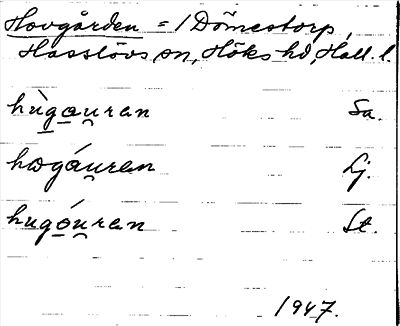 Hovgården = / Dömestorp,
Hasslövs sn, Höks hd, Hall. l.
hùgau̯ran Sa.
hωgáu̯ran Lj.
hugóu̯ran St.
1947.